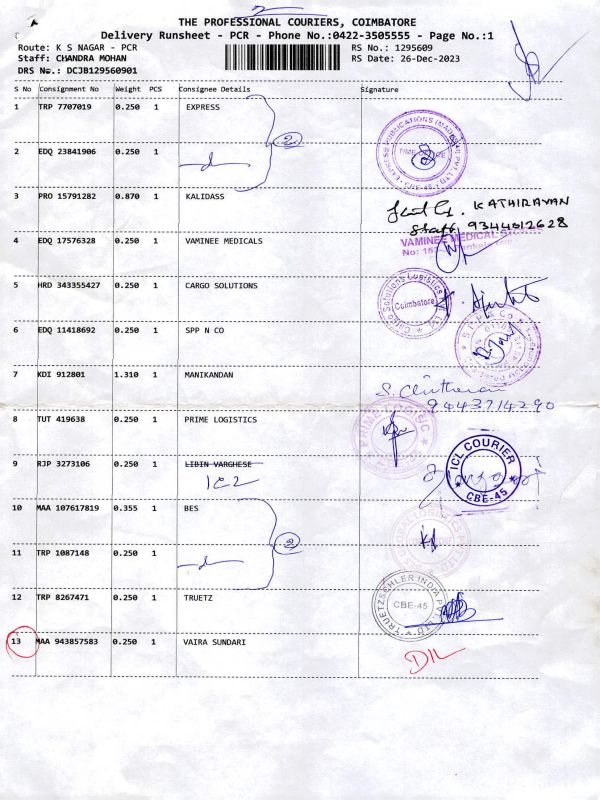 2
THE PROFESSIONAL COURIERS, COIMBATORE
Delivery Runsheet - PCR - Phone No.:0422-3505555 - Page No.:1
Route: K S NAGAR - PCR RS No.: 1295609
Staff: CHANDRA MOHAN RS Date: 26-Dec-2023
DRS No.: DCJB129560901
S No Consignment No Weight PCS Consignee Details Signature
1 TRP 7707019 0.250 1 EXPRESS
2 EDQ 23841906 0.250 1
2
3 PRO 15791282 0.870 1 KALIDASS
KATHIRAVAN
Staff 9344012628
4 EDQ 17576328 0.250 1 VAMINEE MEDICALS
VAMINEE MEDICAL
5 HRD 343355427 0.250 1 CARGO SOLUTIONS
Cargo Solutions Logistics
Coimbatore
6 EDQ 11418692 0.250 1 SPP N CO
7 KDI 912801 1.310 1 MANIKANDAN
9443714290
8 TUT 419638 0.250 1 PRIME LOGISTICS
PRIME LOGISTIC
9 RJP 3273106 0.250 1 LIBIN VARGHESE
ICL
ICL COURIER
CBE-45
10 MAA 107617819 0.355 1 BES
11 TRP 1087148 0.250 1
2
12 TRP 8267471 0.250 1 TRUETZ
TRUETZSCHLER INDIA
CBE-45
13 MAA 943857583 0.250 1 VAIRA SUNDARI
DIL